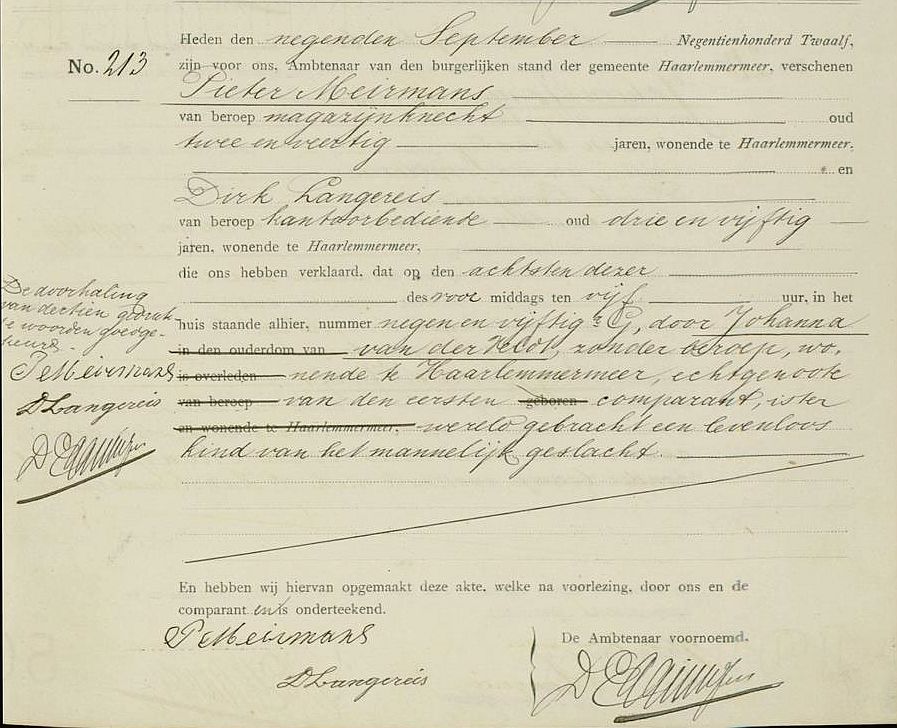 Heden den negenden September Negentienhonderd Twaalf,
No. 213
zijn voor ons, Ambtenaar van den burgerlijken stand der gemeente Haarlemmermeer, verschenen
Pieter Meirmans
van beroep magazijnknecht oud
twee en veertig jaren, wonende te Haarlemmermeer,
en
Dirk Langereis
van beroep kantoorbediende oud drie en vijftig
jaren, wonende te Haarlemmermeer,
die ons hebben verklaard, dat op den achtsten dezer
des voor middags ten vijf uur, in het
huis staande alhier, nummer negen en vijftig G, door Johanna
in den ouderdom van van der , zonder beroep, wo-
is overleden nende te Haarlemmermeer, echtgenoote
van beroep van den eersten geboren comparant, is ter
en wonende te Haarlemmermeer, wereld gebracht een levenloos
kind van het mannelijk geslacht.
De doorhaling
van dertien gedruk-
te woorden goedge-
keurd.
P Meirmans
D Langereis
En hebben wij hiervan opgemaakt deze akte, welke na voorlezing, door ons en de
comparanten is onderteekend.
P Meirmans
D Langereis
De Ambtenaar voornoemd.